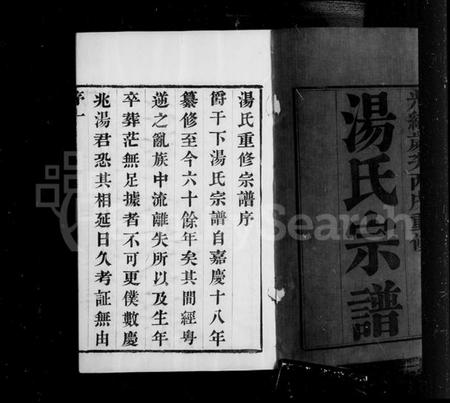 光緒
重修
湯氏宗譜
湯氏重修宗譜序
爵干下湯氏宗譜自嘉慶十八年
纂修至今六十餘年矣其間經粵
逆之亂族中流離失所以及生年
卒葬茫無足據者不可更僕數慶
兆湯君恐其相延日久考証無由
序一